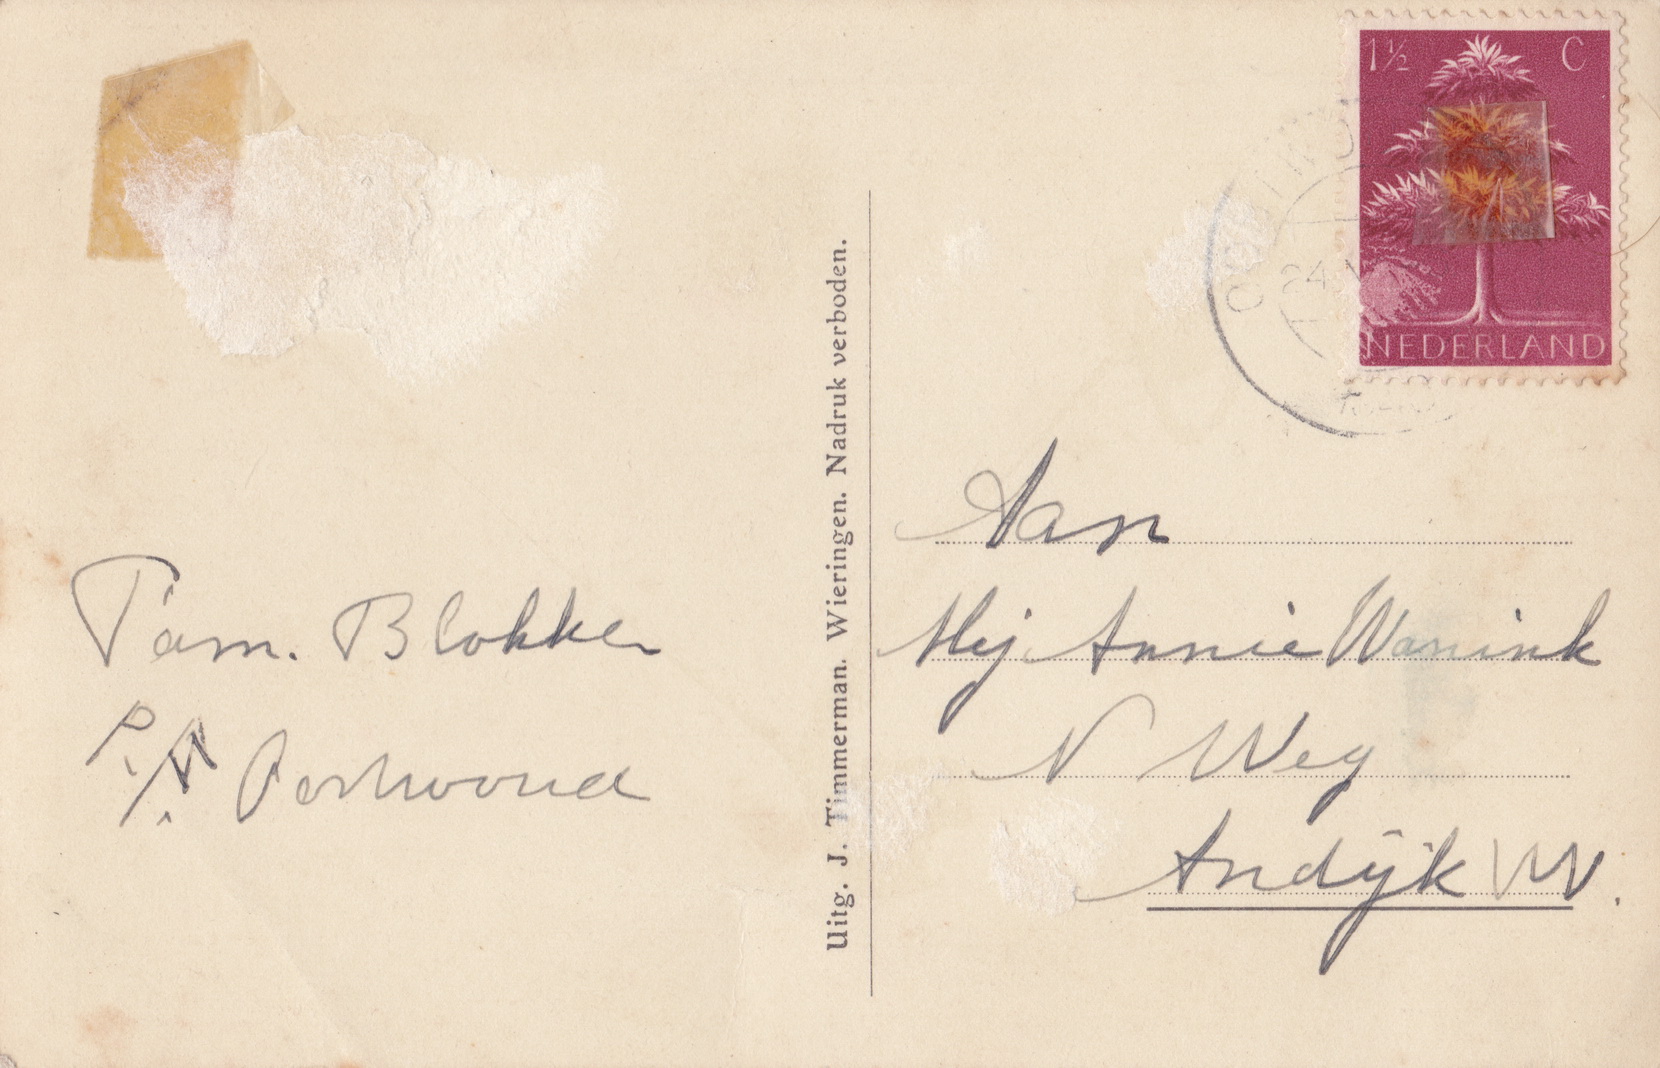 Fam. Blokker
P.
Oosterwoud
Uitg. J. Timmerman. Wieringen. Nadruk verboden.
1½ C
NEDERLAND
24
Aan
Mej Annie Wanink
N Weg
Andijk W.